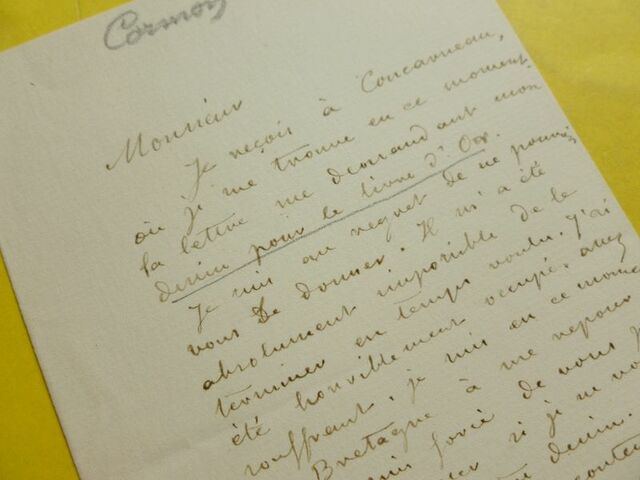 Cormon
Monsieur
Je reçois à Concarneau,
où je me trouve en ce moment
la lettre me demandant mon
dessin pour le livre d'Or.
Je suis au regret de ne pouvoir
vous le donner. Il m'a été
absolument impossible de le
terminer en temps voulu. J'ai
été horriblement occupé. assez
souffrant, je suis en ce mome
Bretagne à me repose
suis forcé de vous p
si je ne vo
dessin.